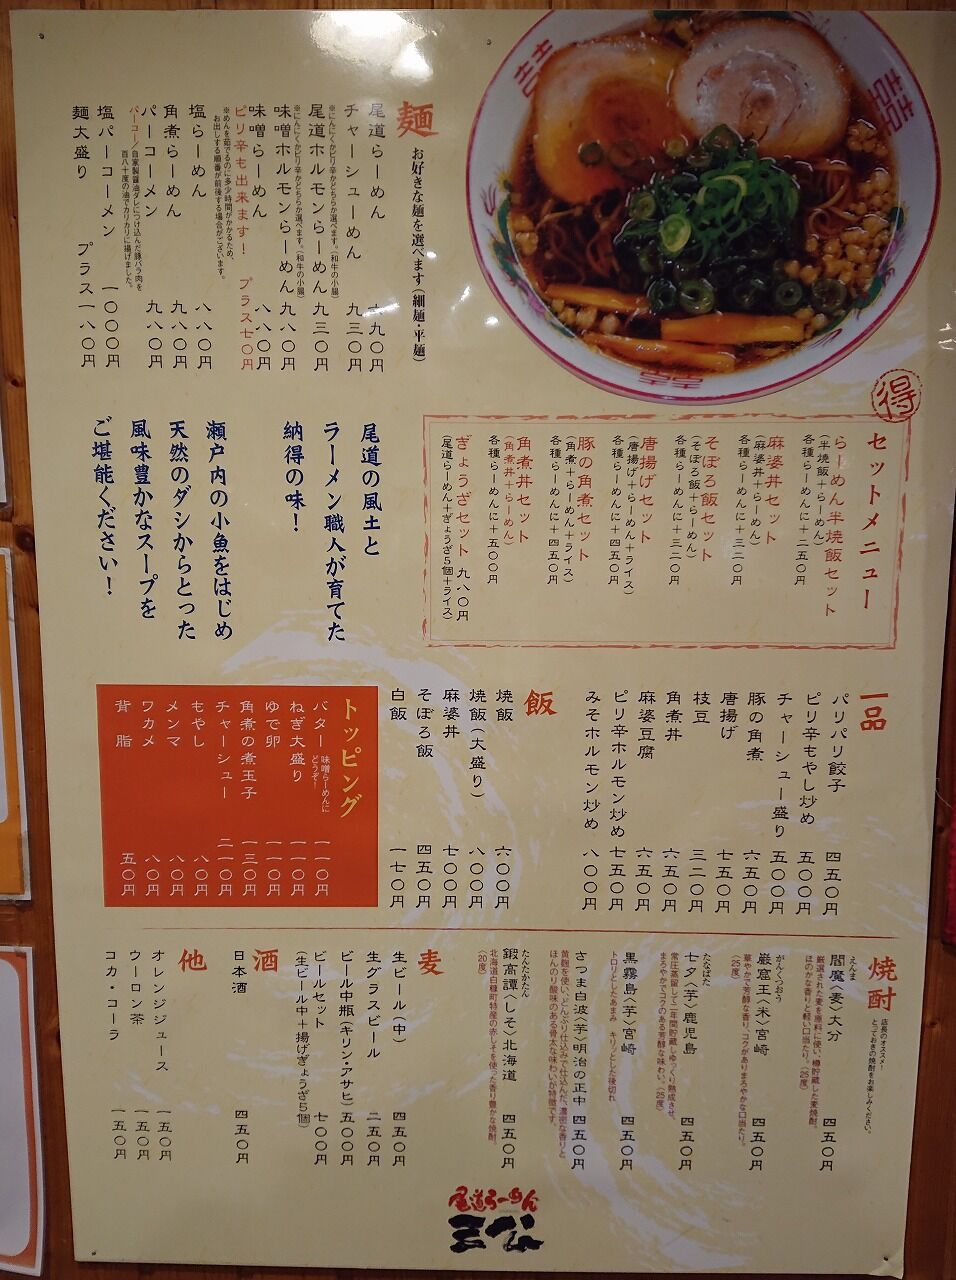 麺 お好きな麺を選べます(細麺・平麺)
尾道らーめん 六九〇円
チャーシューめん 九三〇円
※にんにくかピリ辛かどちらか選べます。(和牛の小腸)
尾道ホルモンらーめん 九三〇円
※にんにくかピリ辛かどちらか選べます。(和牛の小腸)
味噌ホルモンらーめん 九八〇円
味噌らーめん 八八〇円
ピリ辛も出来ます! プラス七〇円
※めんを茹でるのに多少時間がかかるため、
お出しする順番が前後する場合がございます。
塩らーめん 八八〇円
角煮らーめん 九八〇円
パーコーメン 九八〇円
パーコー/自家製醤油ダレにつけ込んだ豚バラ肉を
百八十度の油でカリカリに揚げました。
塩パーコーメン 一〇〇〇円
麺大盛り プラス一八〇円
得
セットメニュー
らーめん半焼飯セット
(半焼飯+らーめん)
各種らーめんに+二五〇円
麻婆丼セット
(麻婆丼+らーめん)
各種らーめんに+三二〇円
そぼろ飯セット
(そぼろ飯+らーめん)
各種らーめんに+三二〇円
唐揚げセット
(唐揚げ+らーめん+ライス)
各種らーめんに+四五〇円
豚の角煮セット
(角煮+らーめん+ライス)
各種らーめんに+四五〇円
角煮丼セット
(角煮丼+らーめん)
各種らーめんに+五〇〇円
ぎょうざセット 九八〇円
(尾道らーめん+ぎょうざ5個+ライス)
尾道の風土と
ラーメン職人が育てた
納得の味!
瀬戸内の小魚をはじめ
天然のダシからとった
風味豊かなスープを
ご堪能ください!
一品
パリパリ餃子 四五〇円
ピリ辛もやし炒め 五〇〇円
チャーシュー盛り 五〇〇円
豚の角煮 六五〇円
唐揚げ 七五〇円
枝豆 三二〇円
角煮丼 六五〇円
麻婆豆腐 六五〇円
ピリ辛ホルモン炒め 七五〇円
みそホルモン炒め 八〇〇円
飯
焼飯 六〇〇円
焼飯(大盛り) 八〇〇円
麻婆丼 七〇〇円
そぼろ飯 四五〇円
白飯 一七〇円
トッピング
バター 味噌らーめんにどうぞ! 一一〇円
ねぎ大盛り 一一〇円
ゆで卵 一一〇円
角煮の煮玉子 一三〇円
チャーシュー 二一〇円
もやし 八〇円
メンマ 八〇円
ワカメ 八〇円
背脂 五〇円
焼酎 店長のオススメ!
とっておきの焼酎をお楽しみください。
えんま
閻魔〈麦〉大分 四五〇円
厳選された麦を原料に使い、樽貯蔵した麦焼酎。
ほのかな香りと軽い口当たり。〈25度〉
がんくつおう
巌窟王〈米〉宮崎 四五〇円
華やかで芳醇な香り、コクがありまろやかな口当たり。
〈25度〉
たなばた
七夕〈芋〉鹿児島 四五〇円
常圧蒸留して一年間貯蔵しゆっくり熟成させ、
まろやかでコクのある芳醇な味わい。〈25度〉
黒霧島〈芋〉宮崎 四五〇円
トロリとしたあまみ キリッとした後切れ
さつま白波〈芋〉明治の正中 四五〇円
黄麹を使い、どんぶり仕込みで仕込んだ、濃密な香りと
ほんのり酸味のある骨太な味わいが特徴です。
たんたかたん
鍛高譚〈しそ〉北海道 四五〇円
北海道白糠町特産の赤しそを使った香り豊かな焼酎。
〈20度〉
麦
生ビール(中) 四五〇円
生グラスビール 二五〇円
ビール中瓶(キリン・アサヒ) 五〇〇円
ビールセット 七〇〇円
(生ビール中+揚げぎょうざ5個)
酒
日本酒 四五〇円
他
オレンジジュース 一五〇円
ウーロン茶 一五〇円
コカ・コーラ 一五〇円
尾道らーめん
三公